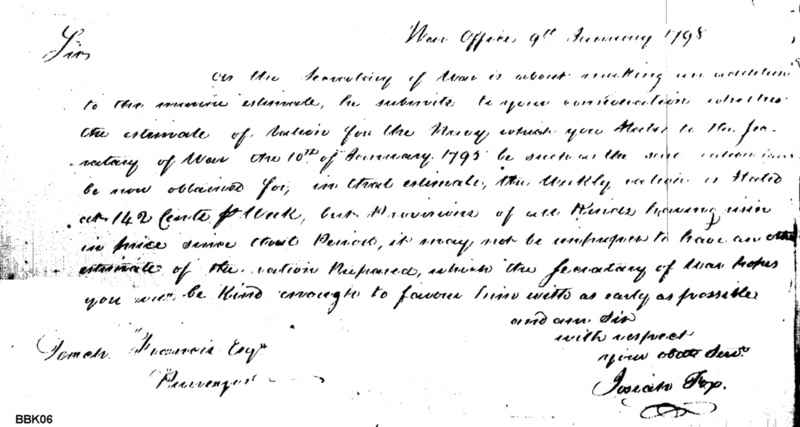 War Office 9th January 1798
Sir
As the Secretary of War is about making an addition
to the marine estimate, he submits to your consideration whether
the estimate of Ration for the Navy which you stated to the Sec-
ratary of War the 10th of January 1795 be such as the said ration can
be now obtained for, in that estimate, the Weekly ration is stated
at 142 Cents P Week, but Provisions of all Kinds having risen
in price since that Period, it may not be improper to have an other
estimate of the ration Prepared, which the Secratary of War hopes
you will be Kind enough to favour him with as early as possible
and am Sir
with respect
your obdt Servt
Tench Francis Esqr
Purveyor
Josiah Fox.
BBK06